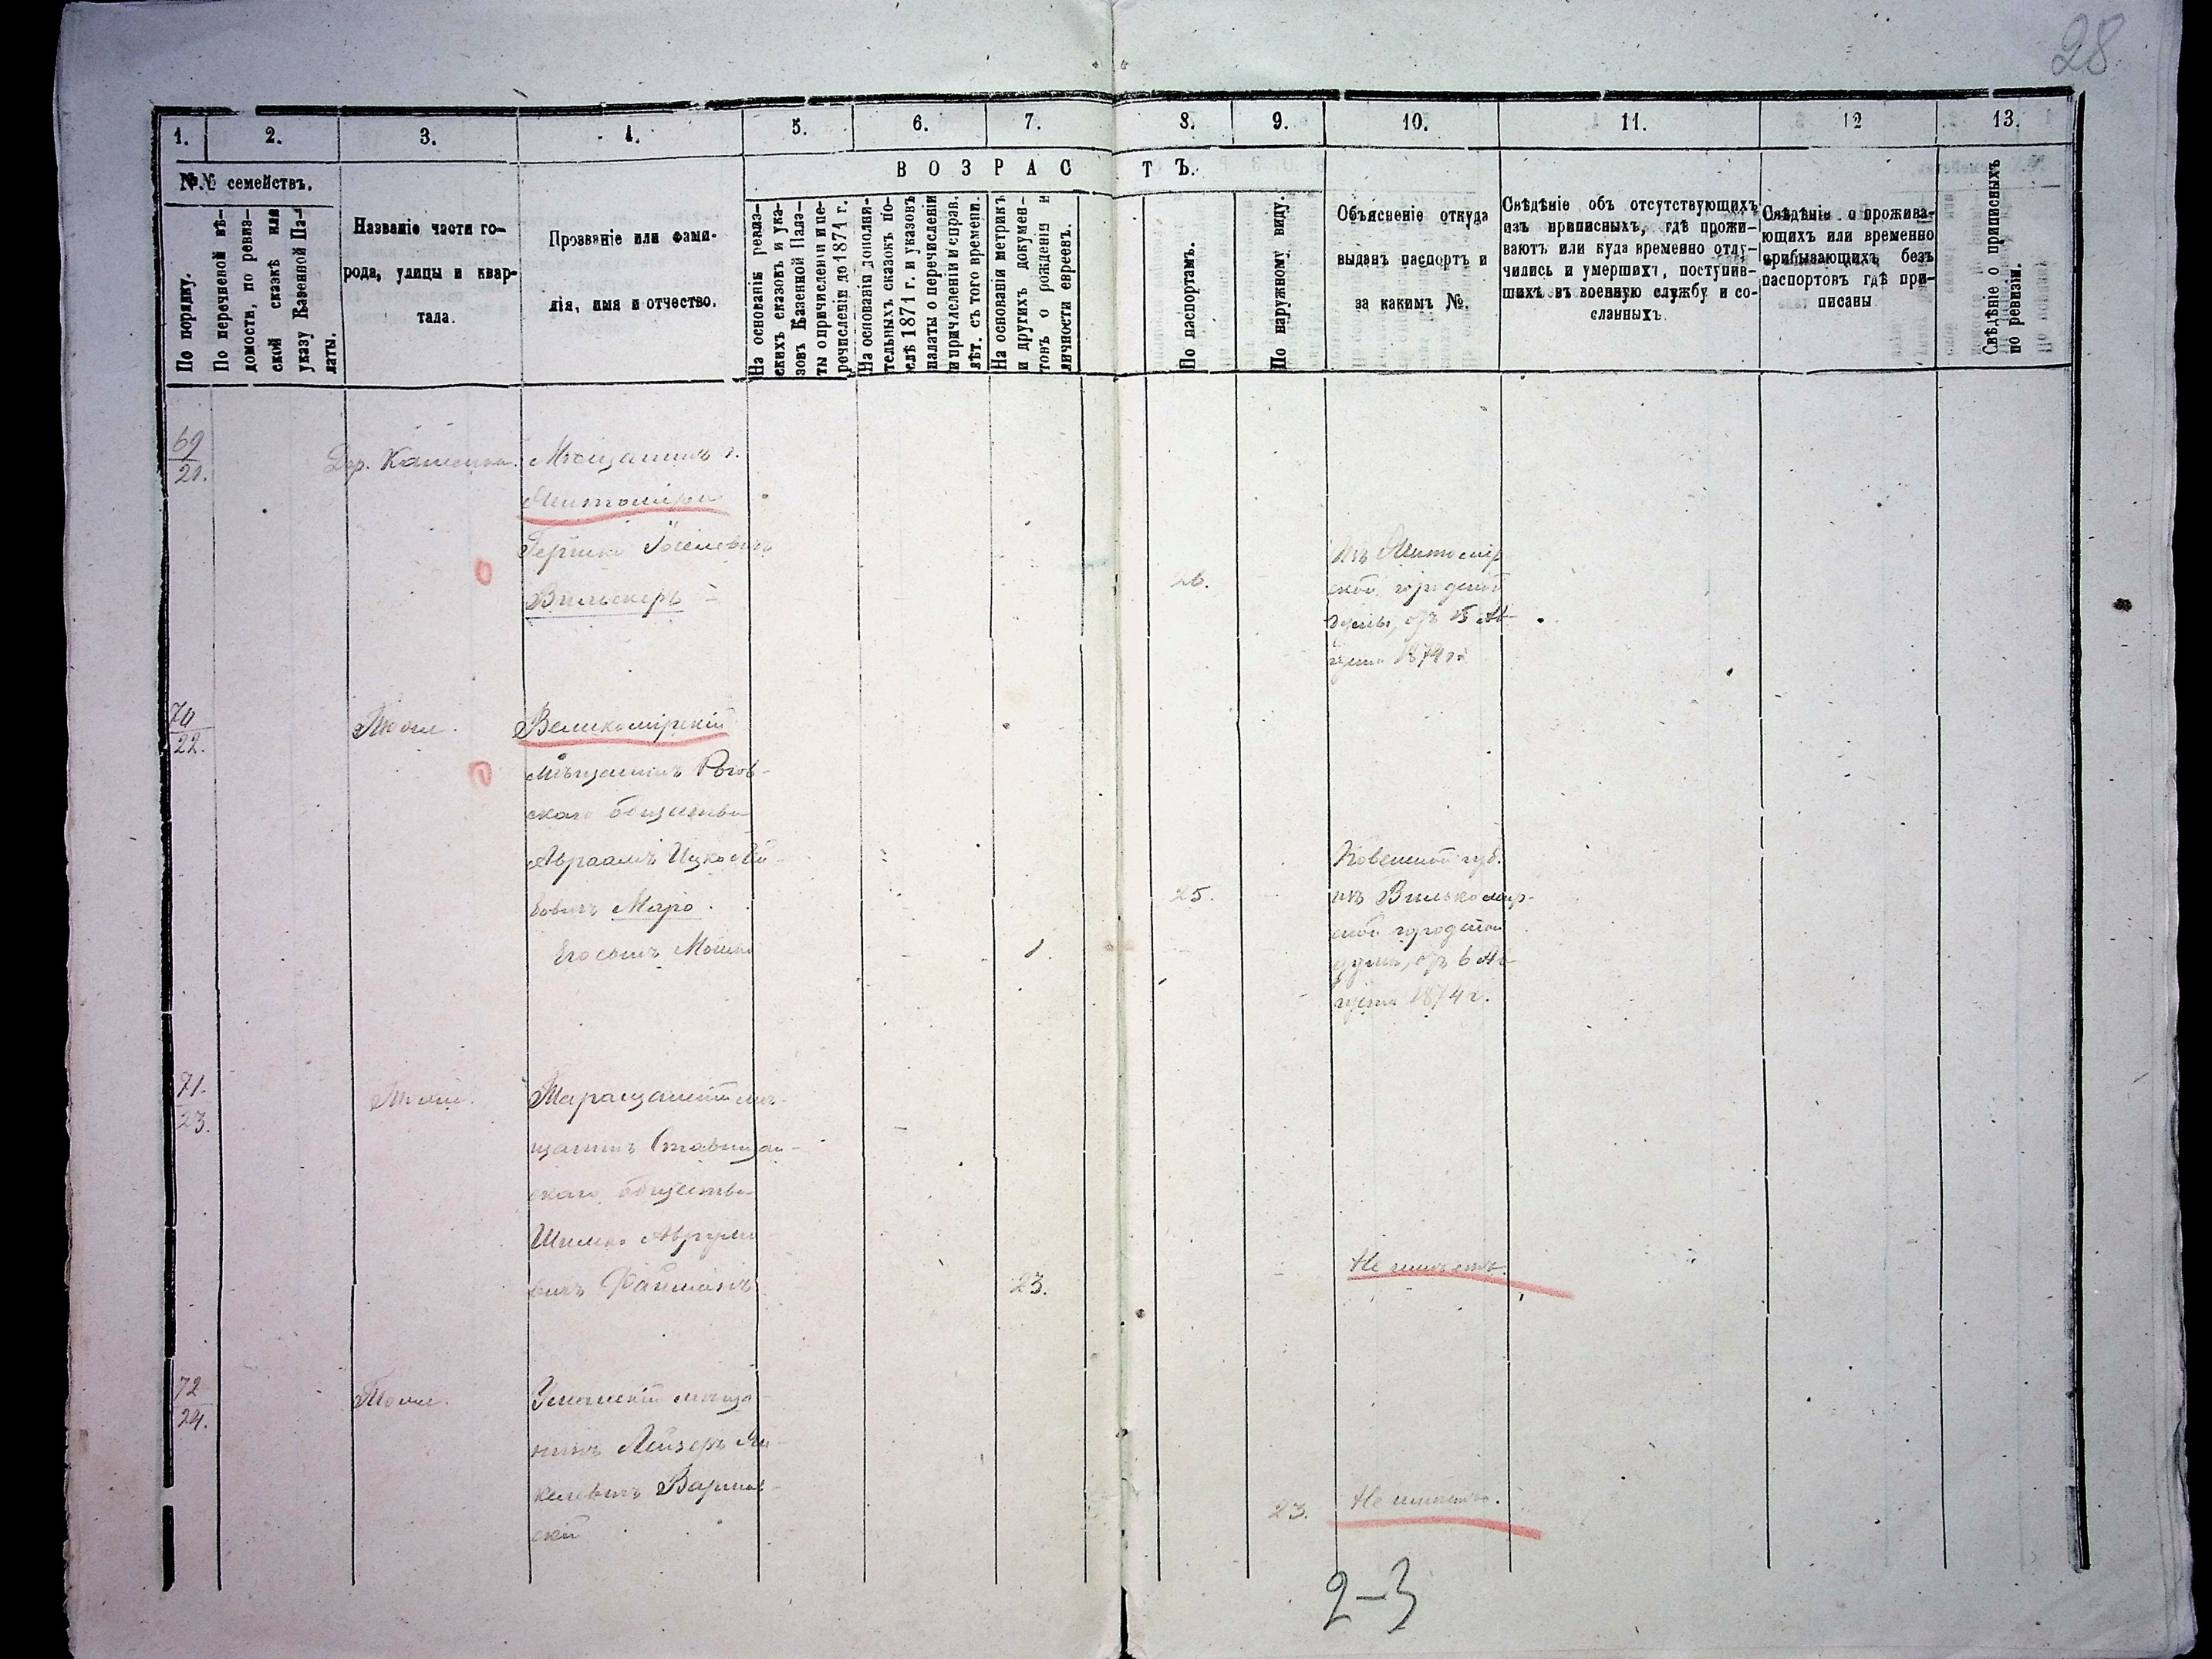 28
1. 2. 3. 4. 5. 6. 7. 8. 9. 10. 11. 12 13.
№.№ семействъ.
В О З Р А С Т Ъ.
По порядку.
По перечневой вѣ-
домости, по ревиз-
ской сказкѣ или
указу Казенной Па-
латы.
Названіе части го-
рода, улицы и квар-
тала.
Прозваніе или фами-
лія, имя и отчество.
На основаніи ревиз-
скихъ сказокъ и ука-
зовъ Казенной Пала-
ты о причисленіи и пе-
речисленіи до 1871 г.
На основаніи дополни-
тельныхъ сказокъ по-
слѣ 1871 г. и указовъ
палаты о перечисленіи
и причисленіи и справ.
лѣт. съ того времени.
На основаніи метрикъ
и другихъ докумен-
товъ о рожденіи и
личности евреевъ.
По паспортамъ.
По наружному виду.
Объясненіе откуда
выданъ паспортъ и
за какимъ №.
Свѣдѣніе объ отсутствующихъ
изъ приписныхъ, гдѣ прожи-
ваютъ или куда временно отлу-
чились и умершихъ, поступив-
шихъ въ военную службу и со-
сланныхъ.
Свѣдѣніе о прожива-
ющихъ или временно
прибывающихъ безъ
паспортовъ гдѣ при-
писаны
Свѣдѣніе о приписныхъ
по ревизіи.
69
21.
Дер. Каменка.
Мѣщанинъ г.
Житоміра
Гершко Іоселевичъ
Вильскеръ
26.
Изъ Житомір
ской городской
думы, отъ 15 Ав-
густа 1874 г.
70
22.
Тоже.
Великомірскій
мѣщанинъ Рогов-
скаго общества
Авраамъ Ицко
бовичъ Миро.
25.
Ковенской губ.
изъ Вилькомир-
ской городской
думы, отъ 6 Ав-
густа 1874 г.
Его сынъ Мошко
1.
71.
23.
Тоже.
Таращанскій мѣ-
щанинъ Ставищан-
скаго общества
Шимко Аврумо
вичъ Файманъ
23.
Не имѣетъ.
72
24.
Тоже.
Уманскій мѣща
нинъ Лейзеръ Ян-
келевичъ Варшав-
скій
23.
Не имѣетъ.
2-3